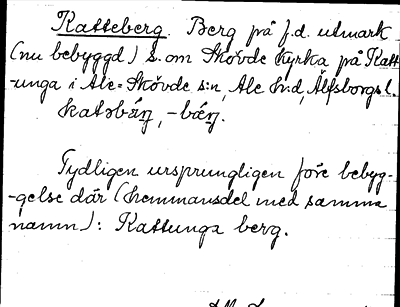 Katteberg. Berg på f.d. utmark
(nu bebyggd) s. om Skövde kyrka på Katt-
-unga i Ale-Skövde s:n, Ale h:d, Älfsborgs l.
katəbæŋ, -bæŋ.
Tydligen ursprungligen före bebyg-
-gelse där (hemmansdel med samma
namn): Kattunga berg.